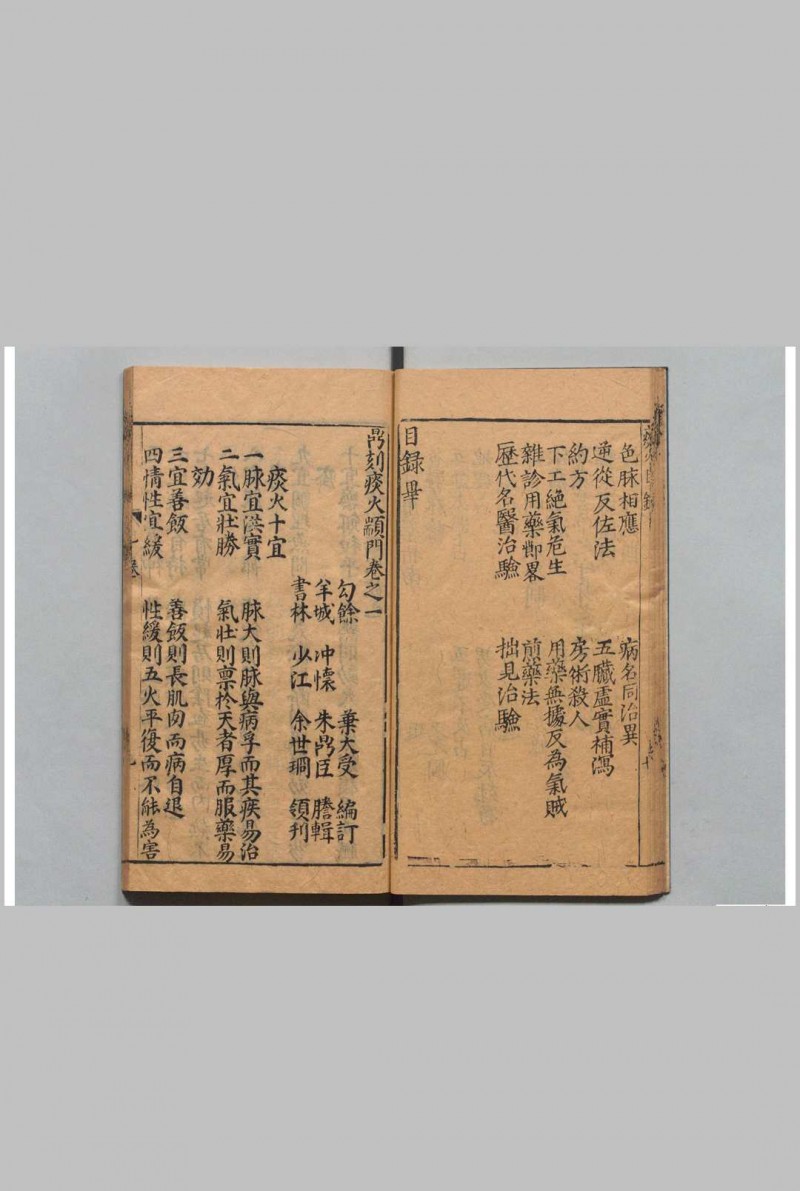 色脉相應 病名同治異
逆從反佐法 五臟虛實補瀉
約方 房術殺人
下工絕氣危生 用藥無據反為氣賊
雜診用藥 煎藥法
歷代名醫治驗 拙見治驗
目録畢
刻痰火顓門卷之一
勾餘 大受 編訂
羊城 冲懷 朱臣 謄輯
書林 少江 余世 領刊
痰火十宜
一脉宜洪實 脉大則脉與病孚而其疾易治
二氣宜壯勝 氣壯則禀於天者厚而服藥易
効
三宜善飯 善飯則長肌肉而病自退
四情性宜緩 性緩則五火平復而不能為害